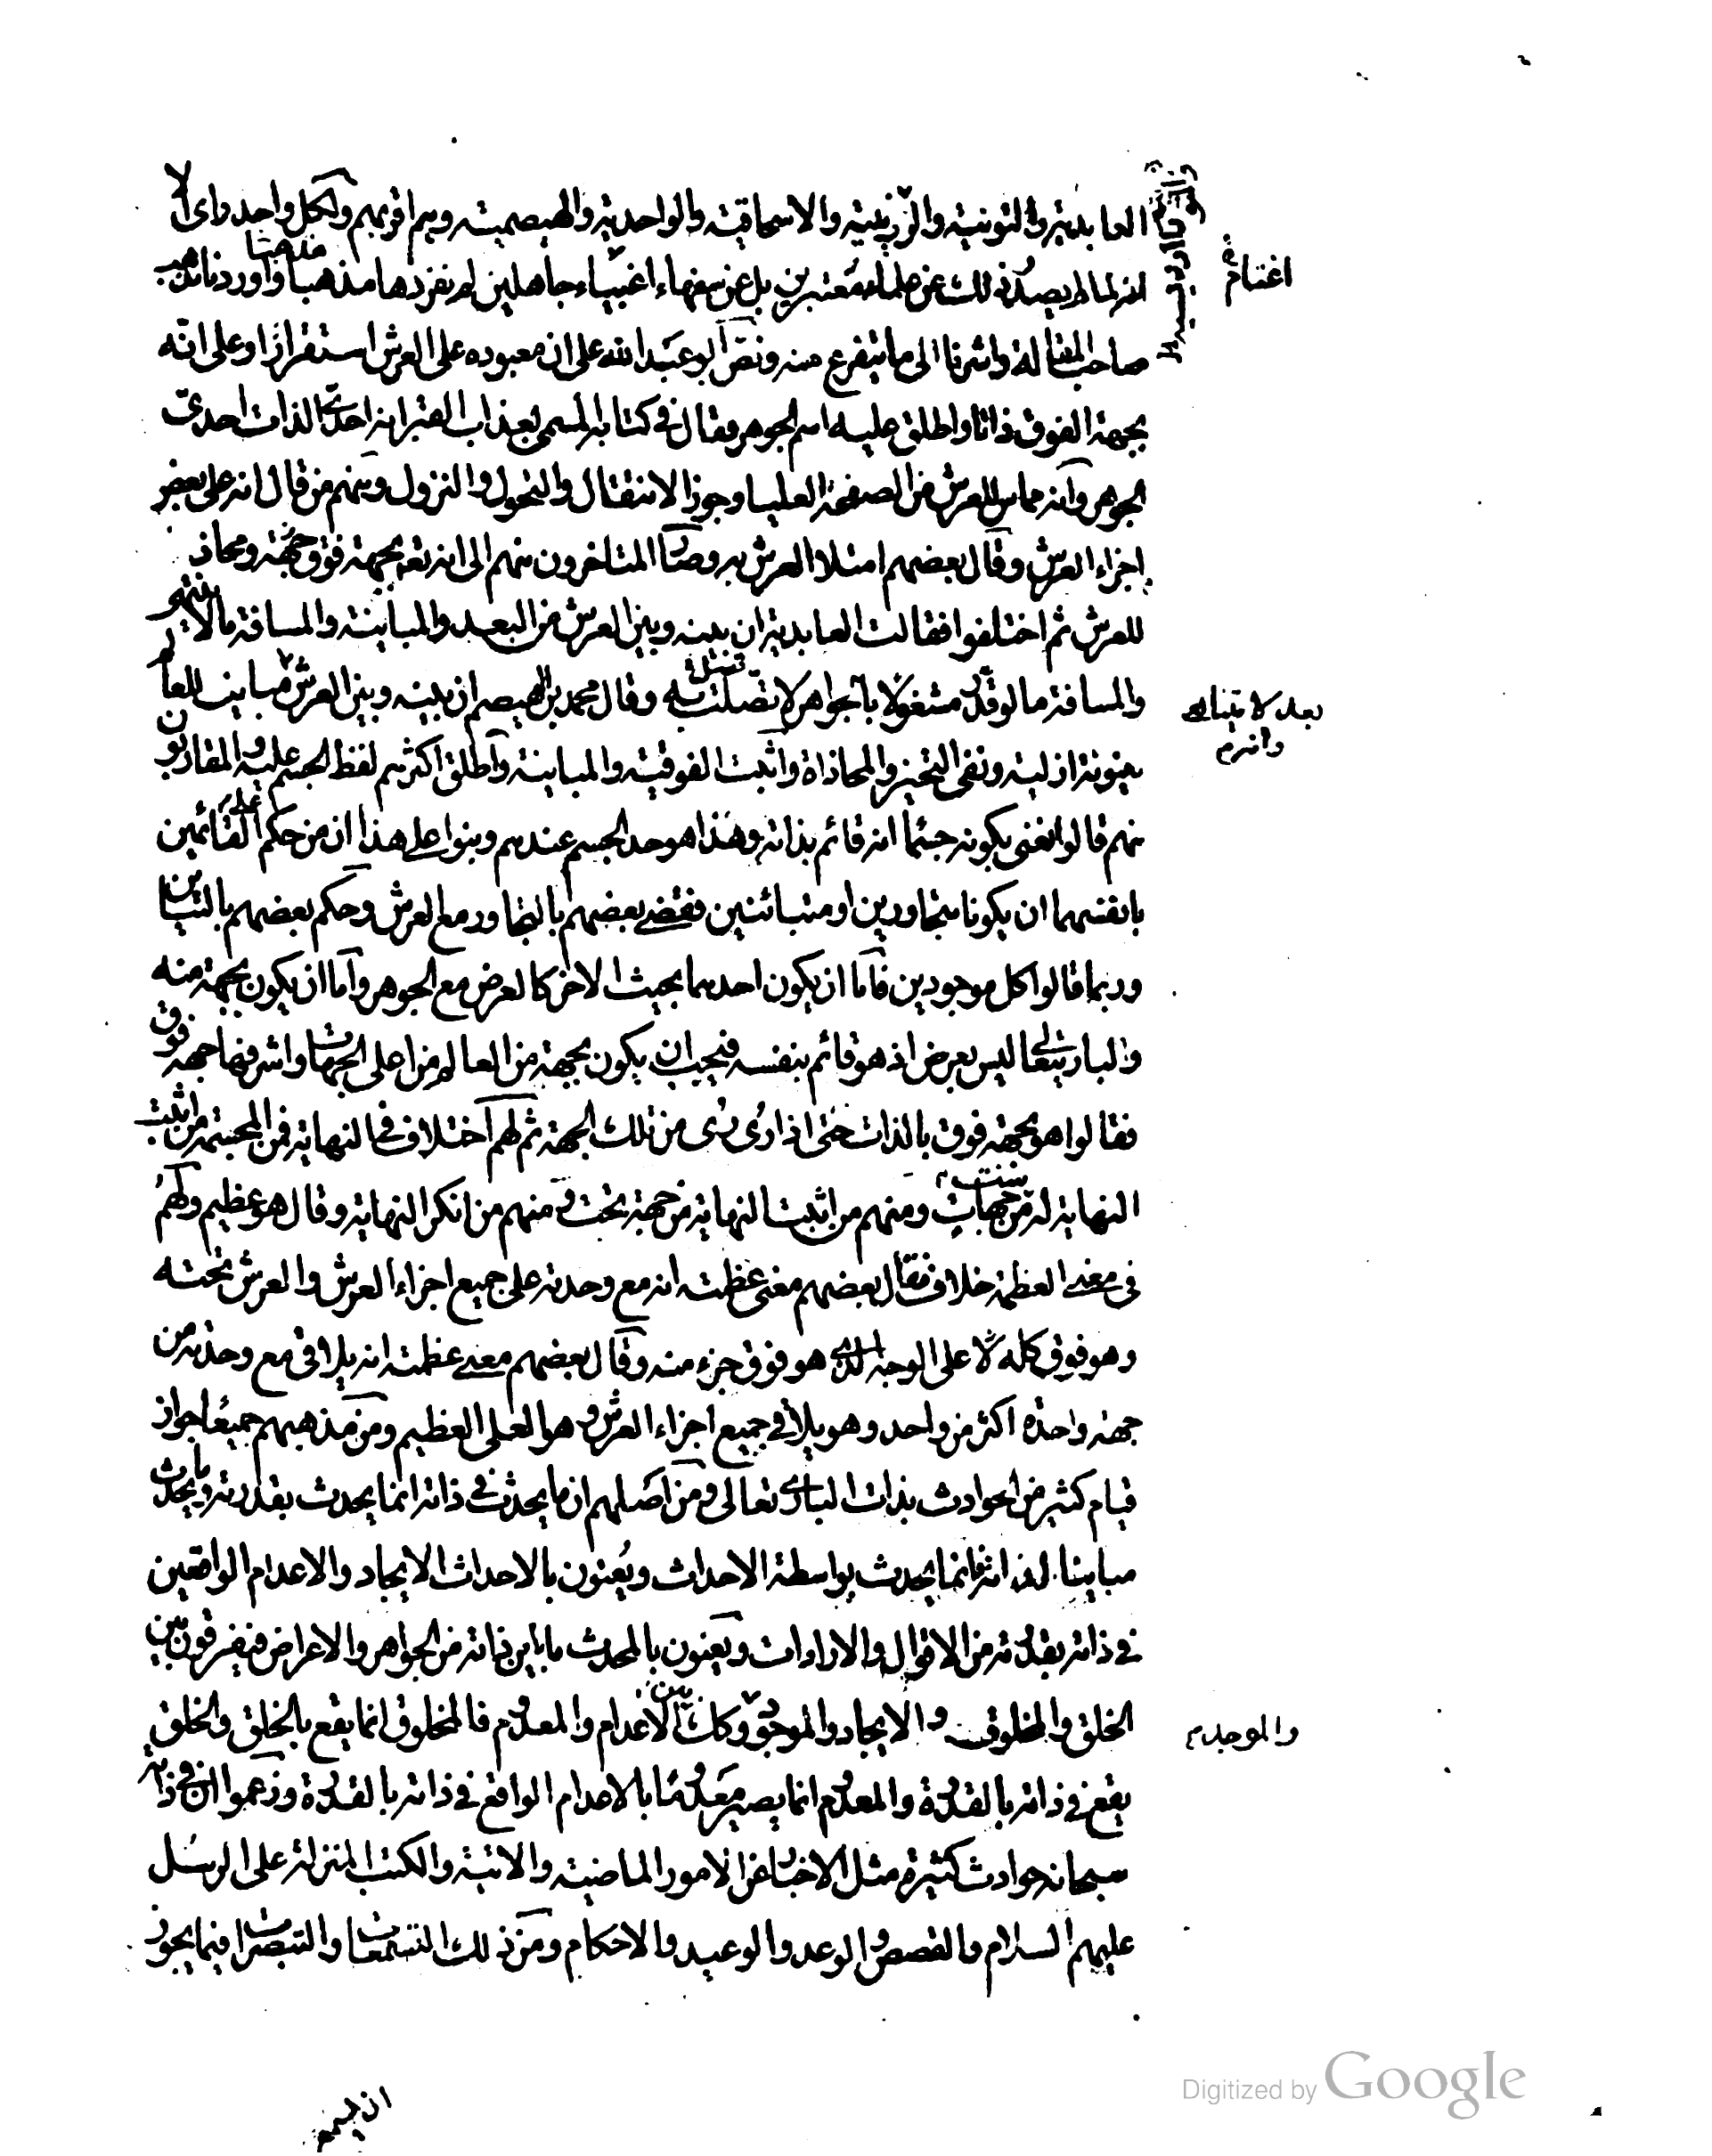 العابدية والتونية والزرينية والاسحاقية والواحدية والهيصمية وهم اقربهم ولكل واحد راى الا
انه لما لم يصدر ذلك عن علماء معتبرين بل عن سفهاء اغبياء جاهلين لم نفردها مذهبا واوردنا مذهب
صاحب المقالة واشرنا الى ما يتفرع منه ونص ابو عبد الله على ان معبوده على العرش استقرارا وعلى انه
بجهة الفوق ذاتا واطلق عليه اسم الجوهر وقال في كتابه المسمى بعذاب القبر انه احدى الذات احدى
الجوهر وانه مماس للعرش من الصفحة العليا وجوز الانتقال والتحول والنزول ومنهم من قال انه على بعض
اجزاء العرش وقال بعضهم امتلا العرش به وصار المتاخرون منهم الى انه تعم بجهة فوق ومحاذ
للعرش ثم اختلفوا فقالت العابدية ان بينه وبين العرش من البعد والمباينة والمسافة ما لا
والمسافة ما لو قدر مشغولا بالجواهر لاتصلت به وقال محمد بن الهيصم ان بينه وبين العرش مباين للعالم
بينونة ازلية ونفى التحيز والمحاذاة واثبت الفوقية والمباينة واطلق اكثرهم لفظ الجسم عليه والمقاربون
منهم قالوا نعنى بكونه جسما انه قائم بذاته وهذا هو حد الجسم عندهم وبنوا على هذا ان من حكم القائمين
بانفسهما ان يكونا متجاورين او متبائنين فقضى بعضهم بالتجاور مع العرش وحكم بعضهم بالتباين
وربما قالوا كل موجودين فاما ان يكون احدهما بحيث الاخر كالعرض مع الجوهر واما ان يكون بجهة منه
والبارى تعالى ليس بعرض اذ هو قائم بنفسه فيجب ان يكون بجهة من العالم من اعلى الجهات واشرفها جهة فوق
فقالوا هو بجهة فوق بالذات حتى اذا رُى رُى من تلك الجهة ثم لهم اختلاف في النهاية فمن المجسمة من اثبت
النهاية له من ست جهات ومنهم من اثبت النهاية من جهة تحت ومنهم من انكر النهاية وقال هو عظيم ولهم
فى معنى العظمة خلاف فقال بعضهم معنى عظمته انه مع وحدته على جميع اجزاء العرش والعرش تحته
وهو فوق كله لا على الوجه الذى هو فوق جزء منه وقال بعضهم معنى عظمته انه يلاقى مع وحدته من
جهة واحدة اكثر من واحد وهو يلاقى جميع اجزاء العرش وهو العلى العظيم ومن مذهبهم جميعا جواز
قيام كثير من الحوادث بذات البارى تعالى ومن اصلهم ان ما يحدث في ذاته انما يحدث بقدرته وما يحدث
مباينا لذاته فانما يحدث بواسطة الاحداث ويعنون بالاحداث الايجاد والاعدام الواقعين
فى ذاته بقدرته من الاقوال والارادات ويعنون بالمحدث ما باين ذاته من الجواهر والاعراض فيفرقون بين
الخلق والمخلوق والايجاد والموجود وكذلك بين الاعدام والمعدوم فالمخلوق انما يقع بالخلق والخلق
يقع فى ذاته بالقدرة والمعدوم انما يصير معدوما بالاعدام الواقع فى ذاته بالقدرة وزعموا ان فى ذاته
سبحانه حوادث كثيرة مثل الاخبار عن الامور الماضية والاتية والكتب المنزلة على الرسل
عليهم السلام والقصص والوعد والوعيد والاحكام ومن ذلك التسمعات والتبصرات فيما يجوز
اغتنام
بعد لا يتناهى
والموجد
ان يسمع
Digitized by Google